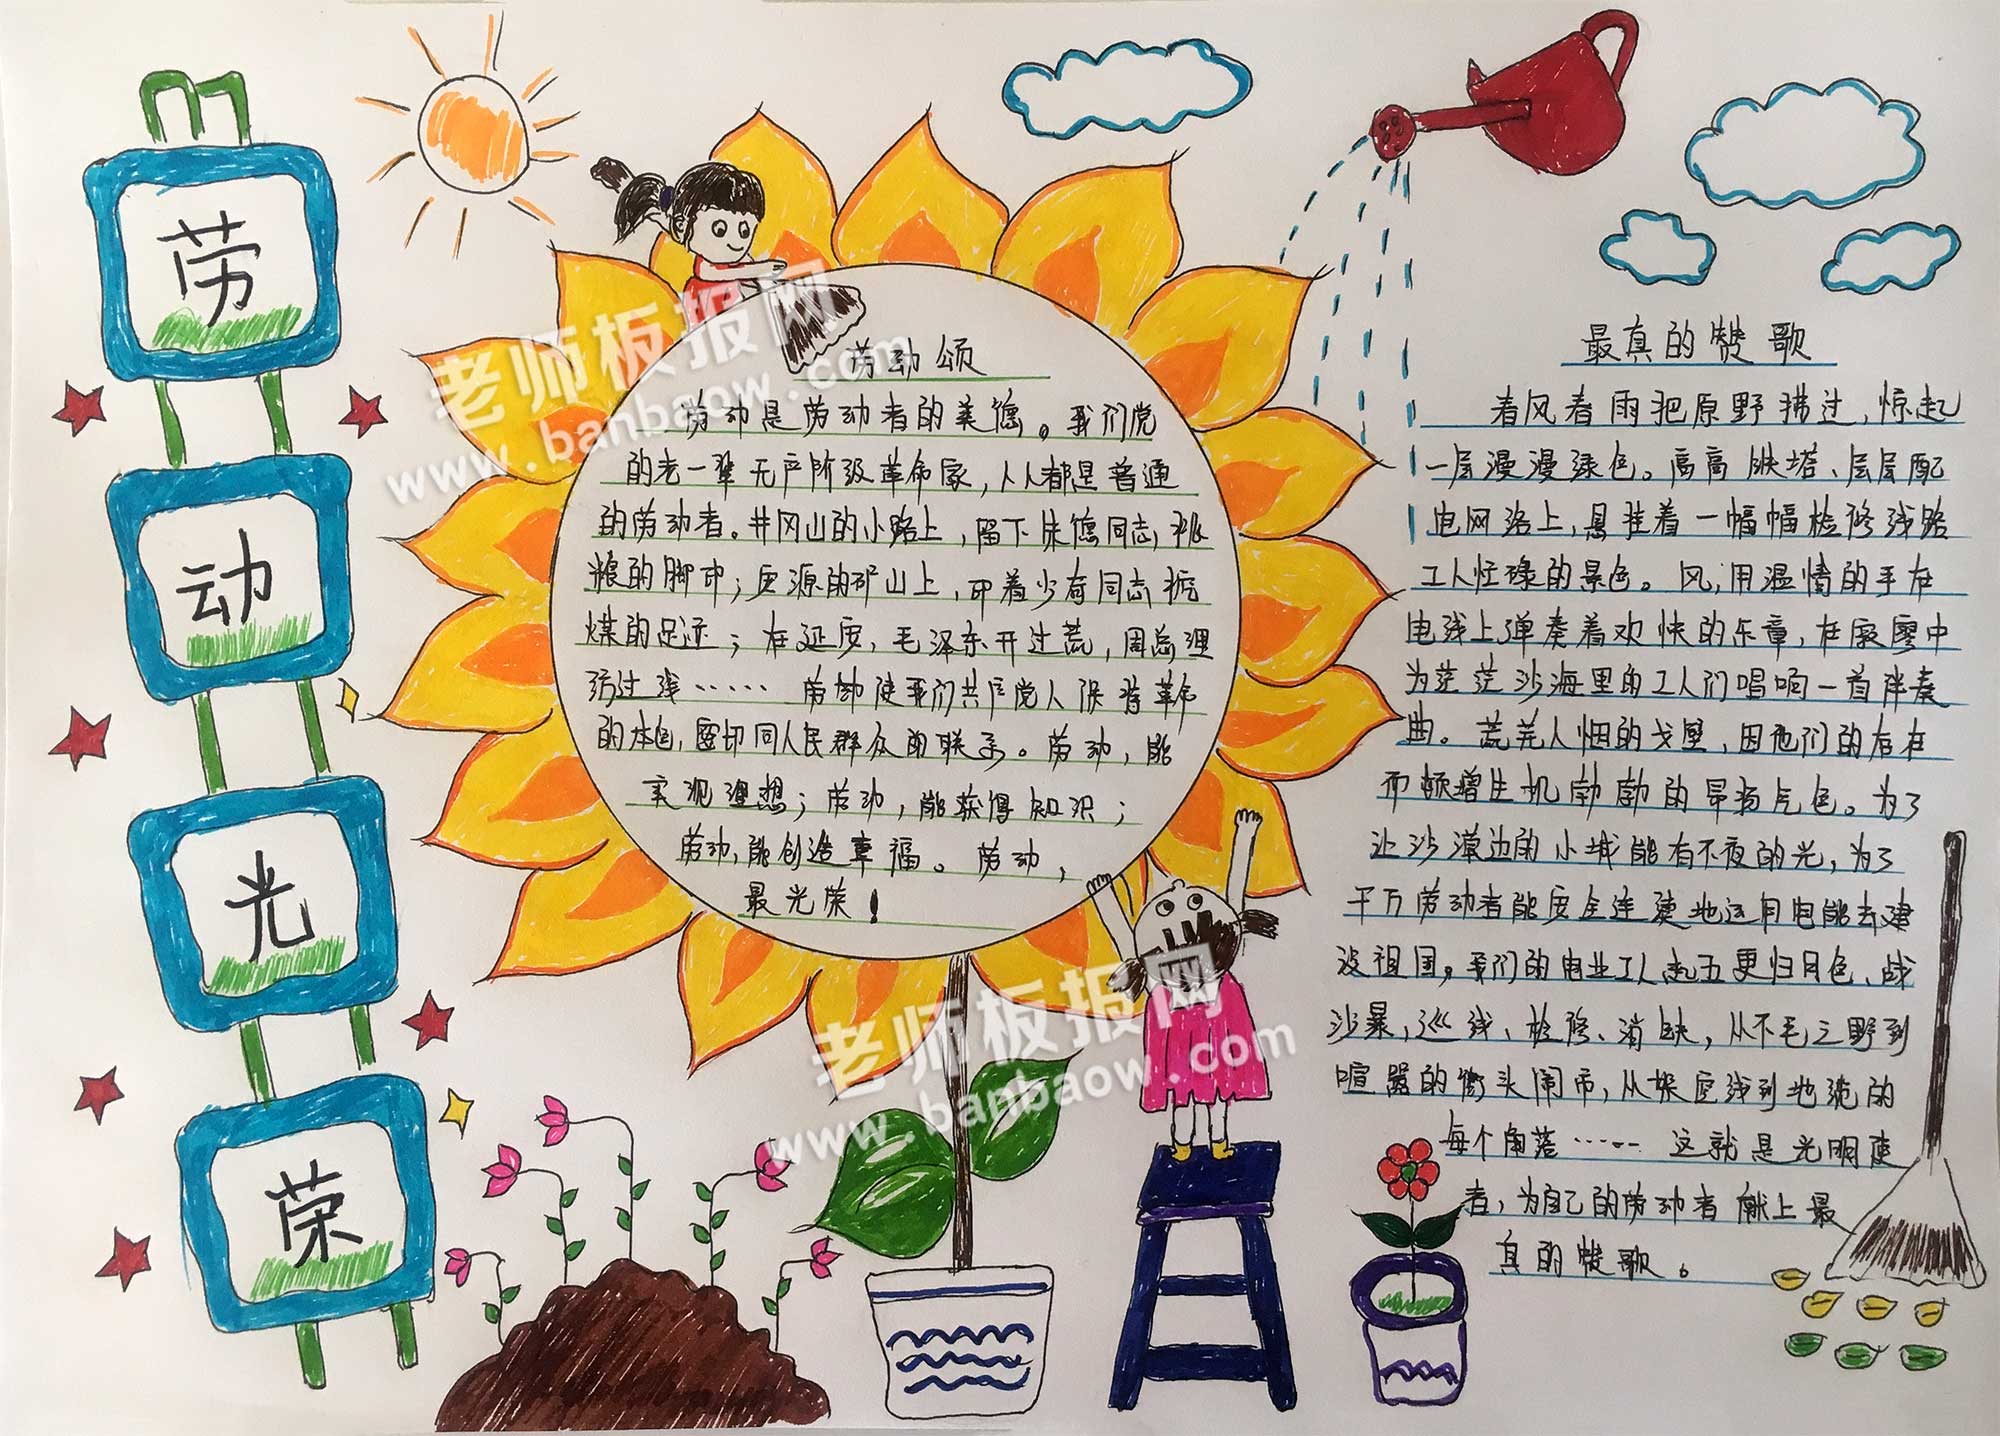 劳
动
光
荣
劳动颂
劳动是劳动者的美德。我们党
的老一辈无产阶级革命家，人人都是普通
的劳动者。井冈山的小路上，留下朱德同志挑
粮的脚印；安源的矿山上，印着少奇同志挖
煤的足迹；在延安，毛泽东开过荒，周总理
纺过线……劳动使我们共产党人保持革命
的本色，密切同人民群众的联系。劳动，能
实现理想；劳动，能获得知识；
劳动，能创造幸福。劳动，
最光荣！
最真的赞歌
春风春雨把原野拂过，惊起
一层漫漫绿色。高高铁塔、层层配
电网络上，悬挂着一幅幅检修线路
工人忙碌的景色。风，用温情的手在
电线上弹奏着欢快的乐章，在寂寥中
为茫茫沙海里的工人们唱响一首伴奏
曲。荒芜人烟的戈壁，因他们的存在
而频增生机勃勃的昂扬气色。为了
让沙漠边的小城能有不夜的光，为了
千万劳动者能安全连续地运用电能去建
设祖国。我们的电业工人赴五更归月色、战
沙暴，巡线、检修、消缺，从不毛之野到
喧嚣的街头闹市，从保安线到地绕的
每个角落……这就是光明使
者，为自己的劳动者献上最
真的赞歌。
老师板报网
www.banbaow.com
老师板报网
www.banbaow.com